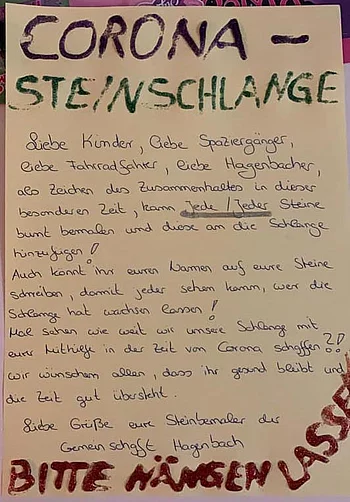 CORONA –
STEINSCHLANGE
Liebe Kinder, liebe Spaziergänger,
liebe Fahrradfahrer, liebe Hagenbacher,
als Zeichen des Zusammenhaltes in dieser
besonderen Zeit, kann Jede/Jeder Steine
bunt bemalen und diese an die Schlange
hinzufügen!
Auch könnt ihr euren Namen auf eure Steine
schreiben, damit jeder sehen kann, wer die
Schlange hat wachsen lassen!
Mal sehen wie weit wir unsere Schlange mit
eurer Mithilfe in der Zeit von Corona schaffen?!
Wir wünschen allen, dass ihr gesund bleibt und
die Zeit gut übersteht.
Liebe Grüße eure Steinbemaler der
Gemeinschaft Hagenbach
BITTE HÄNGEN LASSEN